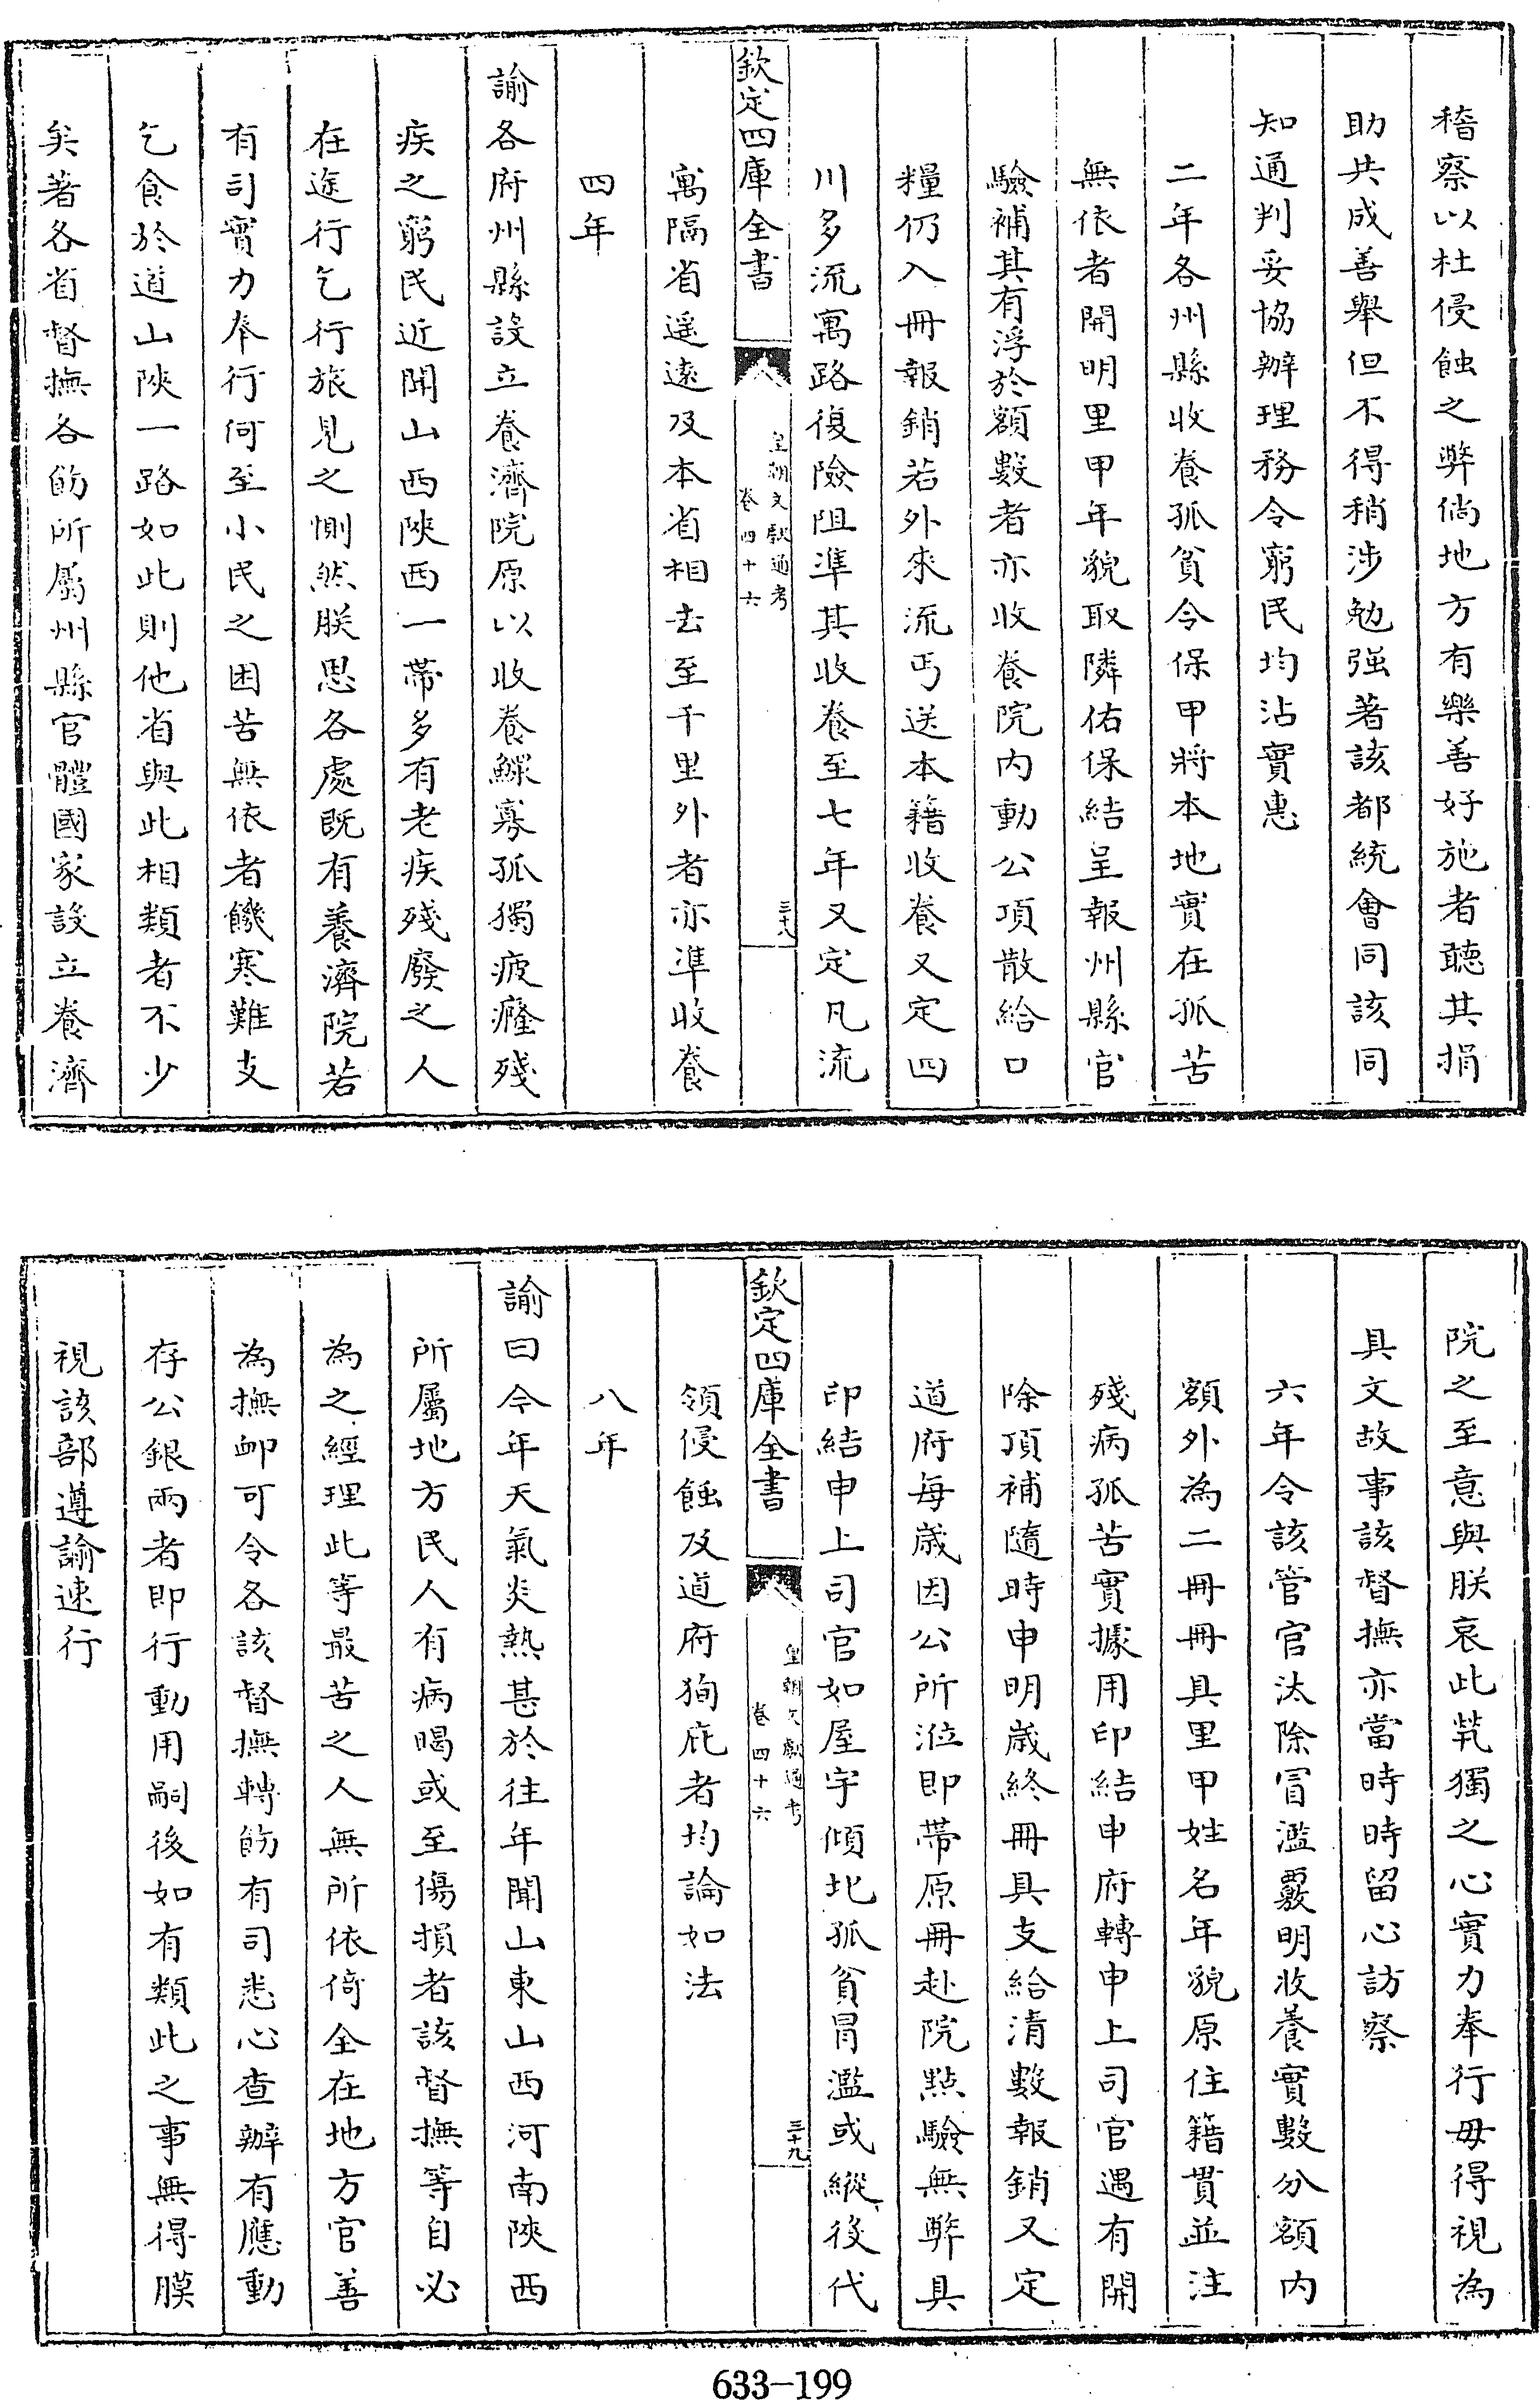 稽察以杜侵蝕之弊倘地方有樂善好施者聽其捐
助共成善舉但不得稍涉勉强著該都統會同該同
知通判妥協辦理務令窮民均沾實惠
二年各州縣收養孤貧令保甲將本地實在孤苦
無依者開明里甲年貌取隣佑保結呈報州縣官
驗補其有浮於額數者亦收養院内動公項散給口
糧仍入冊報銷若外來流丐送本籍收養又定四
川多流寓路復險阻準其收養至七年又定凡流
欽定四庫全書
皇朝文獻通考
卷四十六
三十八
寓隔省遥遠及本省相去至千里外者亦準收養
四年
諭各府州縣設立養濟院原以收養鰥寡孤獨疲癃殘
疾之窮民近聞山西陜西一帶多有老疾殘廢之人
在途行乞行旅見之惻然朕思各處既有養濟院若
有司實力奉行何至小民之困苦無依者饑寒難支
乞食於道山陜一路如此則他省與此相類者不少
矣著各省督撫各飭所屬州縣官體國家設立養濟
院之至意與朕哀此煢獨之心實力奉行毋得視為
具文故事該督撫亦當時時留心訪察
六年令該管官汰除冒濫覈明收養實數分額内
額外為二冊冊具里甲姓名年貌原住籍貫並注
殘病孤苦實據用印結申府轉申上司官遇有開
除頂補隨時申明歲終冊具支給清數報銷又定
道府每歲因公所涖即帶原冊赴院點驗無弊具
印結申上司官如屋宇傾圮孤貧冒濫或縱後代
欽定四庫全書
皇朝文獻通考
卷四十六
三十九
領侵蝕及道府狥庇者均論如法
八年
諭曰今年天氣炎熱甚於往年聞山東山西河南陜西
所屬地方民人有病暍或至傷損者該督撫等自必
為之經理此等最苦之人無所依倚全在地方官善
為撫卹可令各該督撫轉飭有司悉心查辦有應動
存公銀兩者即行動用嗣後如有類此之事無得膜
視該部遵諭速行
633-199